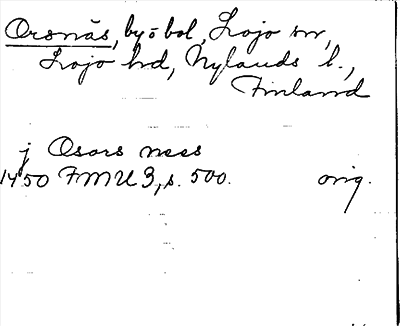 Orsnäs, by o bol, Lojo sn,
Lojo hd, Nylands l.,
Finland
j Osors nees
1450 FMU 3, s. 500. orig.